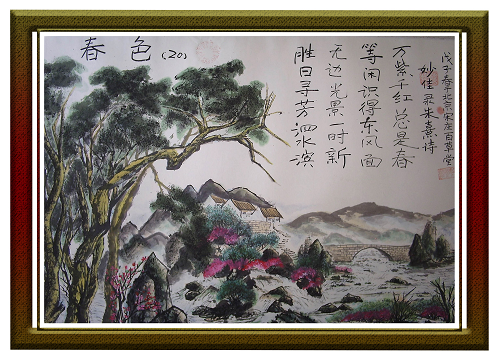 春色(20)
胜日寻芳泗水滨
无边光景一时新
等闲识得东风面
万紫千红总是春
妙佳录朱熹诗
戊子春于北京宋庄百草堂